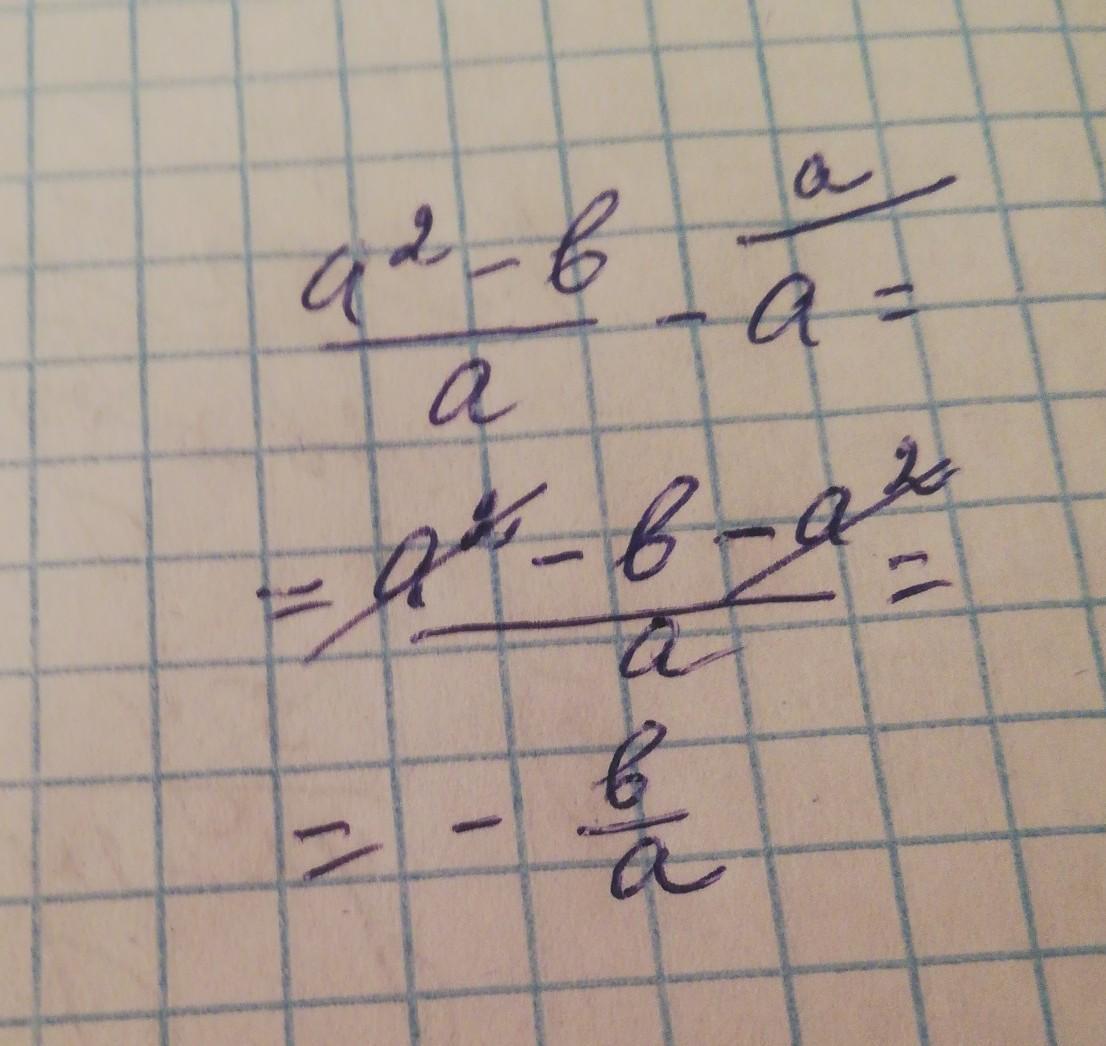 (a² - b)/a - a^{a/} =
= (a² - b - a²)/a =
= - b/a